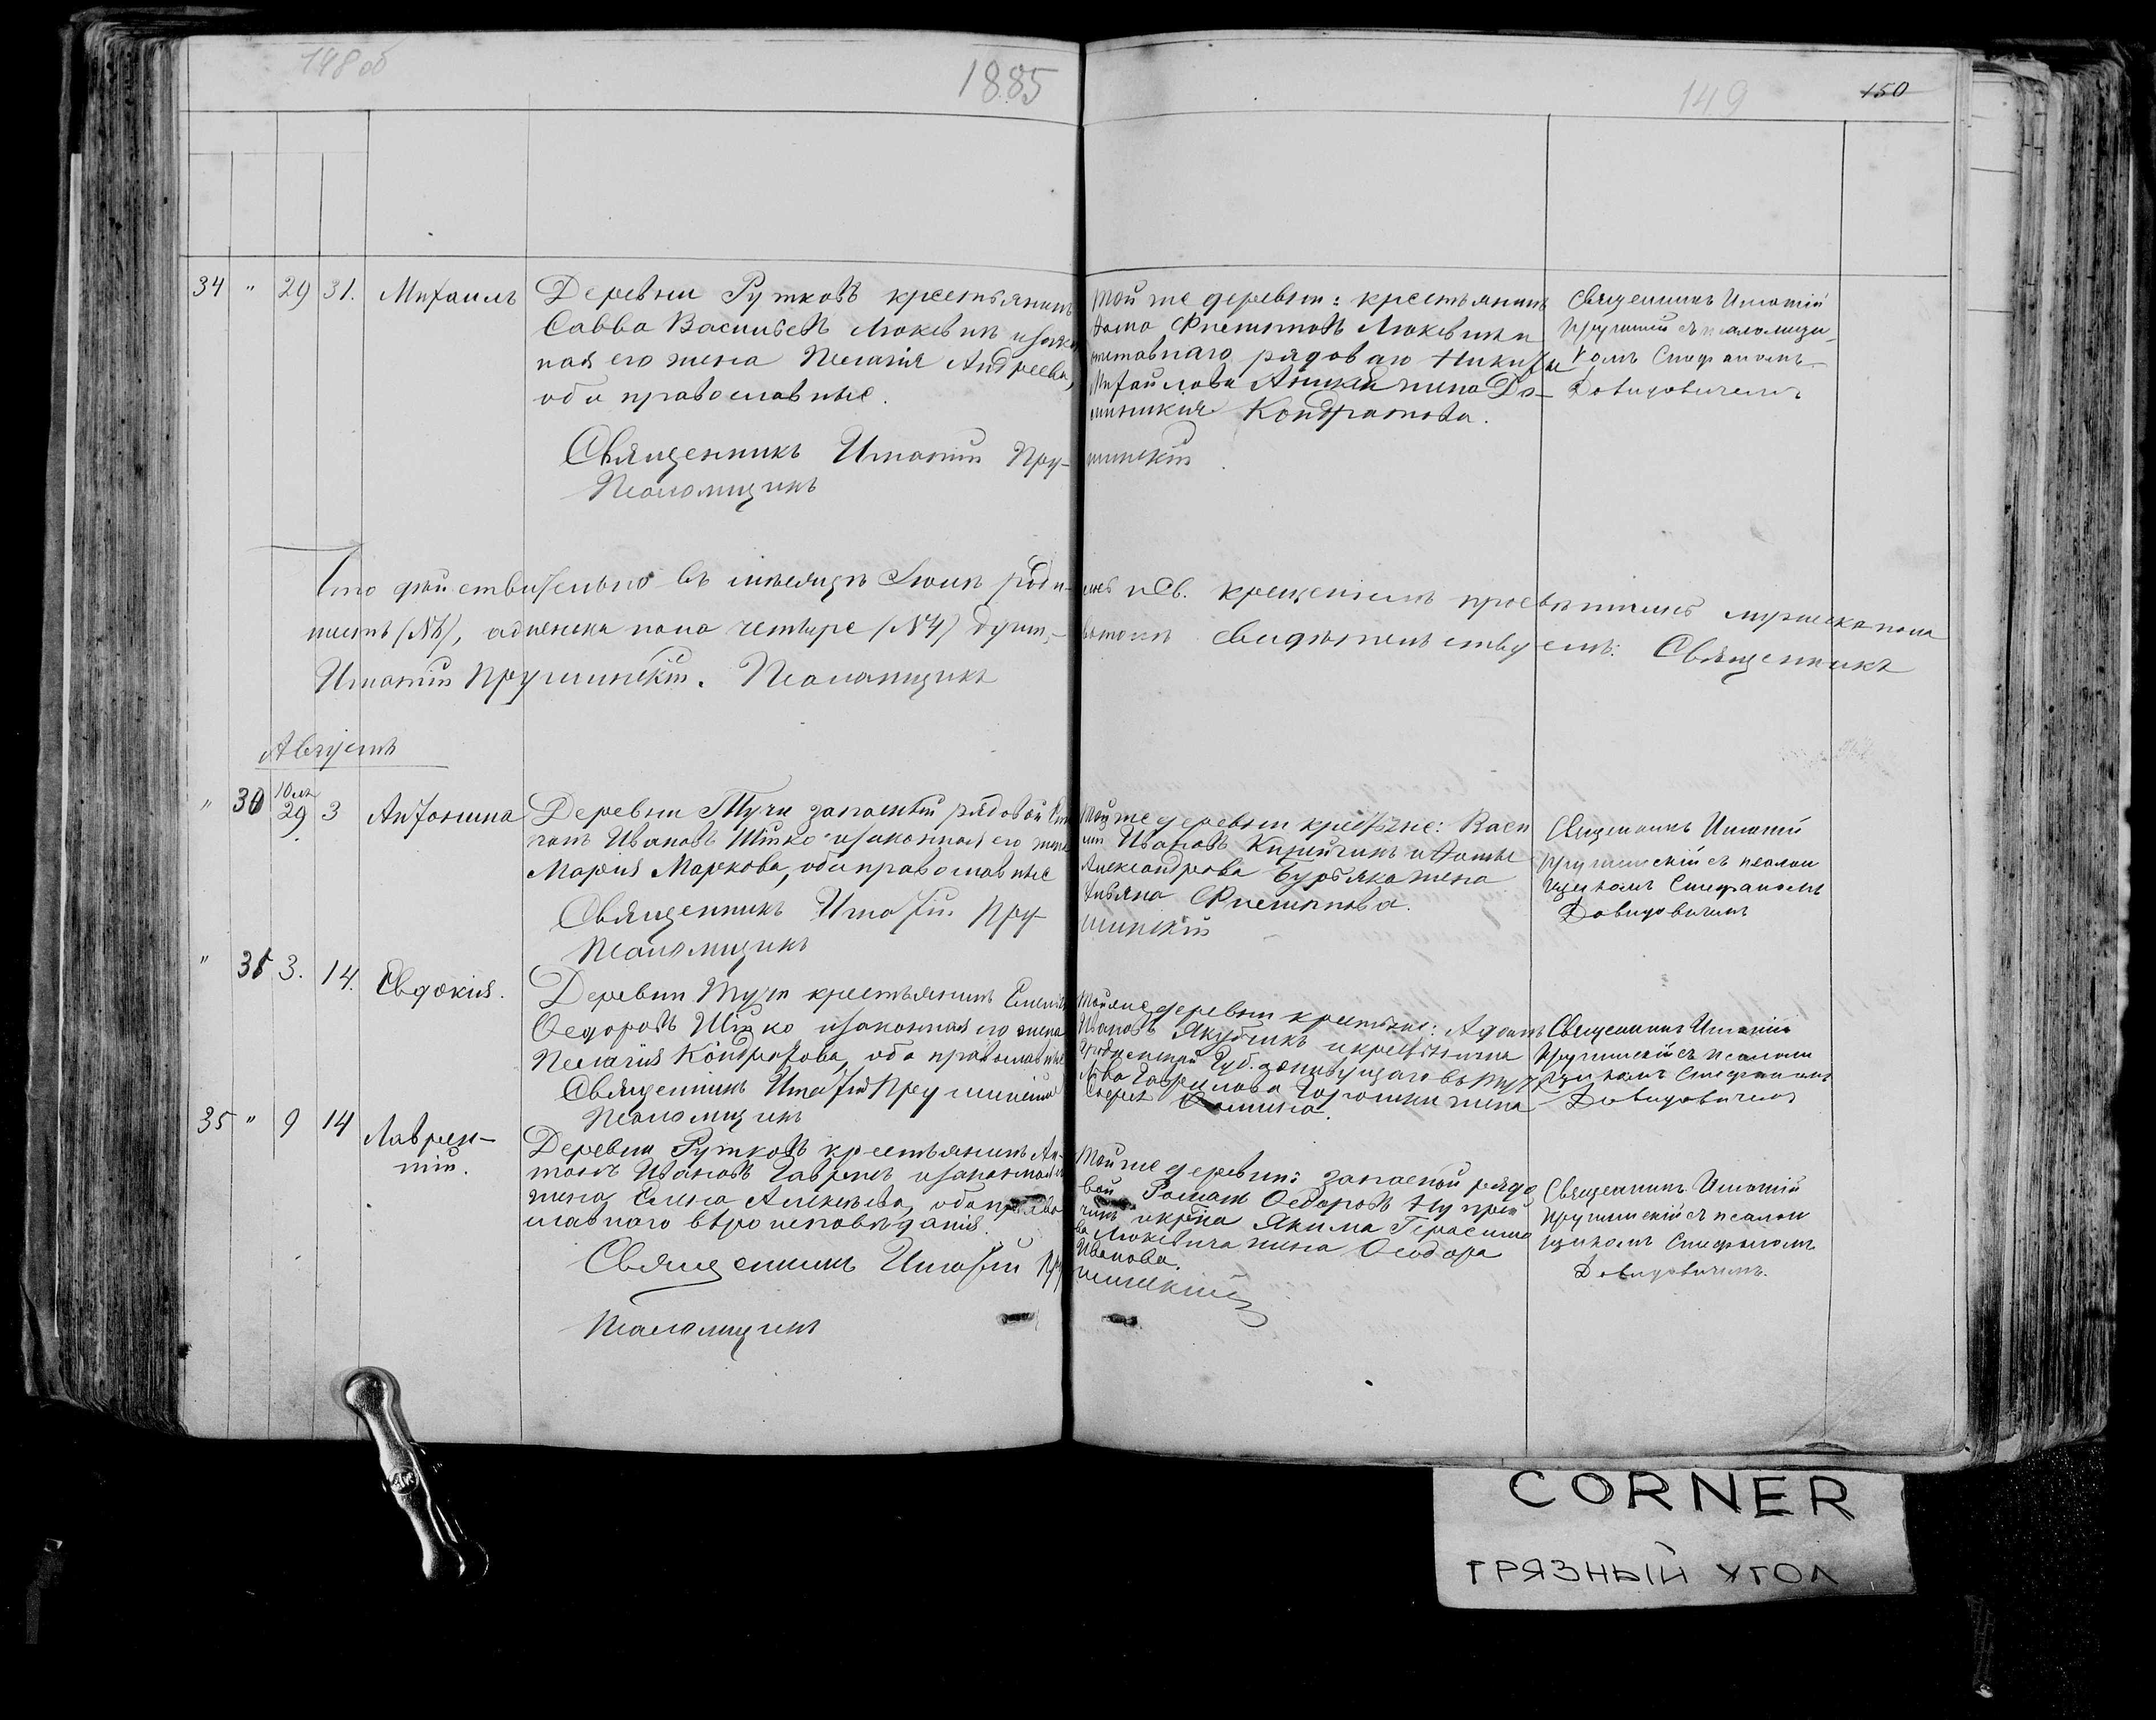 148 об
1885
149
150
34 " 29 31. Михаилъ
Деревни Рутковъ крестьянинъ
Савва Васильевъ Люкевичъ и закон
ная его жена Пелагія Андреева,
оба православные.
Священникъ Игнатій Пру-
Псаломщикъ
Той же деревни: крестьянинъ
Ѳома Филиповъ Люкевичъ и
отставнаго рядоваго Никиты
Михайлова жена До-
миникія Кондратова.
шинскій
Священникъ Игнатій
Прушинскій съ псаломщи-
комъ Стефаномъ
Давидовичемъ
Что дѣйствительно въ мѣсяцѣ Іюлѣ роди-
лось и Св. крещеніемъ просвѣщены мужеска пола
а женска пола четыре (№4) душ,-
въ томъ свидѣтельствуемъ: Священникъ
Игнатій Прушинскій. Псаломщикъ
Августъ
" 30 Юля 29 3 Антонина
Деревни Тучи запасный рядовой
Ивановъ Шитко и законная его жена
Марія Маркова, оба православные
Священникъ Игнатій Пру-
Псаломщикъ
Той же деревни крестьяне: Васи
лій Ивановъ и
Александрова Бурбяка жена
Ульяна Филипова.
шинскій
Священникъ Игнатій
Прушинскій съ псалом
щикомъ Стефаномъ
Давидовичемъ
" 31 3. 14. Евдокія.
Деревни Тучи крестьянинъ
Ѳедоровъ Шитко и законная его жена
Пелагія Кондратова, оба православные
Священникъ Игнатій Прушинскій
Псаломщикъ
Той же деревни крестьяне: Адамъ
Ивановъ Якубчикъ и крестьянина
Гродненской Губ.
Гаврилова жена
Ѳомина.
Священникъ Игнатій
Прушинскій съ псалом
щикомъ Стефаномъ
Давидовичемъ
35 " 9 14 Лаврен-
тій.
Деревни Рутковъ крестьянинъ Ан-
тонъ Ивановъ и законная его
жена Елена Алексѣева, оба право
славнаго вѣроисповѣданія.
Священникъ Игнатій Пру
Псаломщикъ
Той же деревни: запасной рядо
вой Романъ Ѳедоровъ Купрей
чикъ и крѣна Якима Герасимо
ва Люкевича жена Ѳеодора
Иванова.
шинскій
Священникъ Игнатій
Прушинскій съ псалом
щикомъ Стефаномъ
Давидовичемъ.
CORNER
ГРЯЗНЫЙ УГОЛ